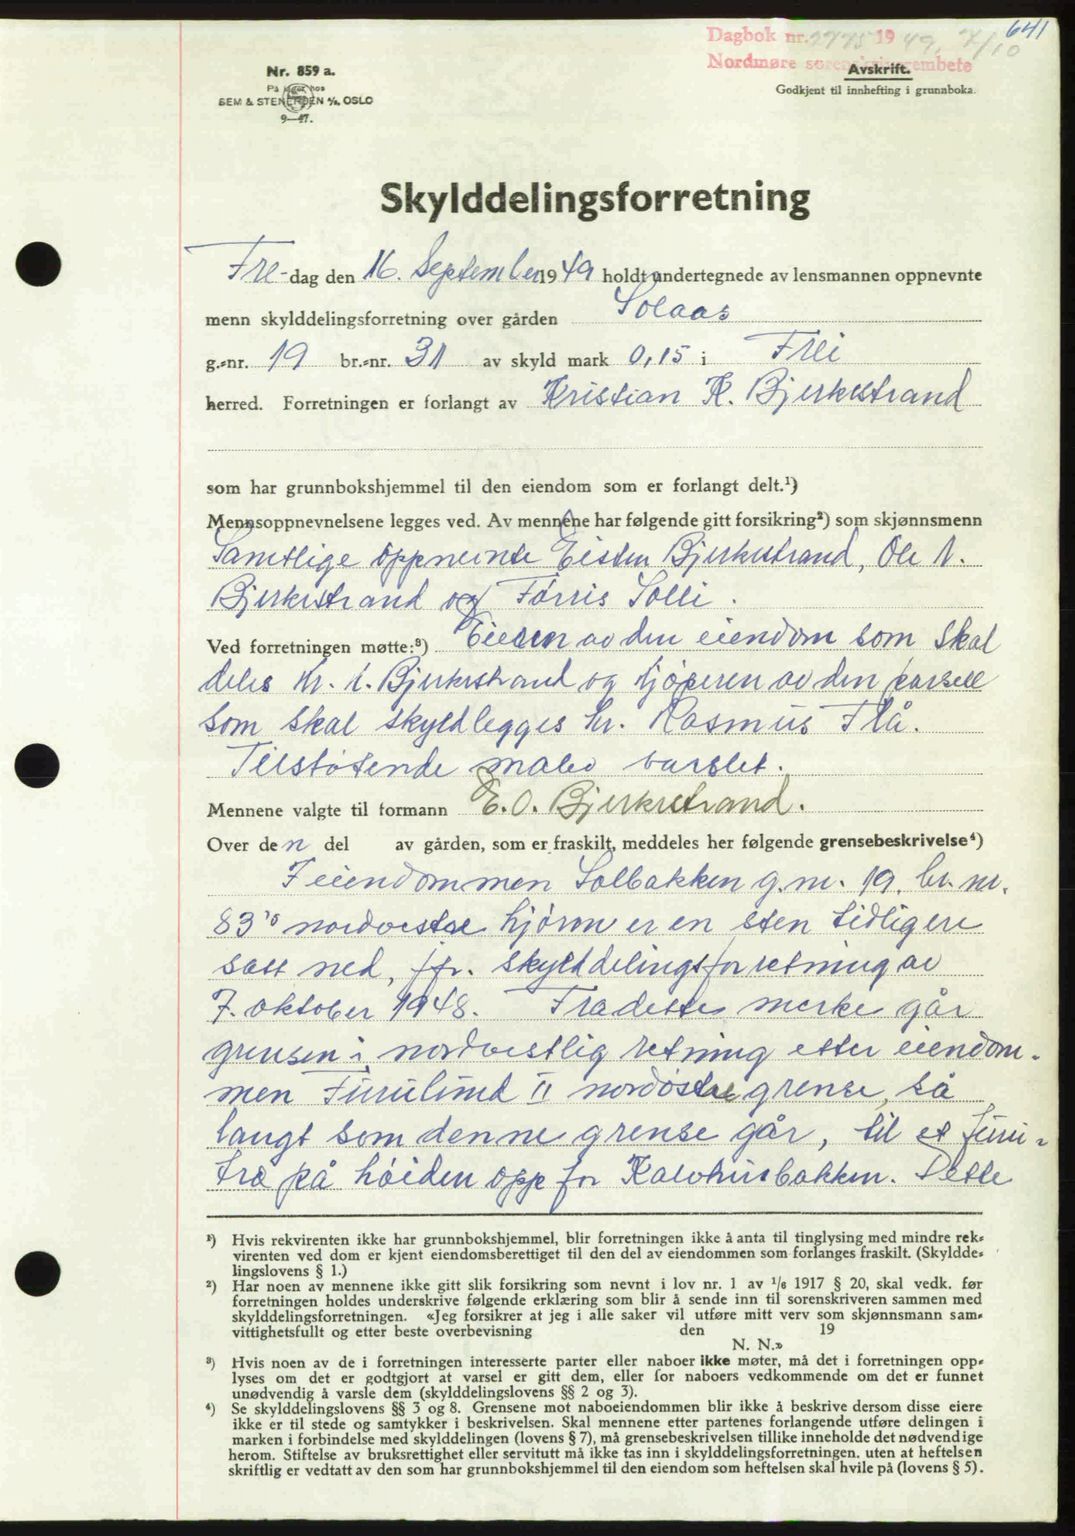 641
Dagbok nr. 2775 1949, 7/10
Nordmøre sorenskriverembete
Avskrift.
Godkjent til innhefting i grunnboka.
Nr. 859 a.
På lager hos
SEM & STENERSEN A/S, OSLO
9—47.
Skylddelingsforretning
Fre-dag den 16. September 1949 holdt undertegnede av lensmannen oppnevnte
menn skylddelingsforretning over gården Solaas
g.-nr. 19 br.-nr. 31 av skyld mark 0,15 i Frei
herred. Forretningen er forlangt av Kristian K. Bjerkestrand
som har grunnbokshjemmel til den eiendom som er forlangt delt.¹)
Mennsoppnevnelsene legges ved. Av mennene har følgende gitt forsikring²) som skjønnsmenn
Samtlige oppnevnte Eisten Bjerkestrand, Ole N.
Bjerkestrand og Tørris Solli.
Ved forretningen møtte:³) Eieren av den eiendom som skal
deles Kr. K. Bjerkestrand og kjøperen av den parsell
som skal skyldlegges hr. Rasmus Flå.
Tilstøtende naboer varslet.
Mennene valgte til formann E. O. Bjerkestrand.
Over den del av gården, som er fraskilt, meddeles her følgende grensebeskrivelse⁴)
I eiendommen Solbakken g. nr. 19. br. nr.
83's nordvestre hjørne er en sten tidligere
satt ned, jfr. skylddelingsforretning av
7. oktober 1948. Fra dette merke går
grensen i nordvestlig retning etter eiendom-
men Furulund II nordøstre grense, så
langt som denne grense går, til et furu-
tre på høiden opp for Kalvhusbakken. Dette
¹) Hvis rekvirenten ikke har grunnbokshjemmel, blir forretningen ikke å anta til tinglysing med mindre rek-
virenten ved dom er kjent eiendomsberettiget til den del av eiendommen som forlanges fraskilt. (Skyldde-
lingslovens § 1.)
²) Har noen av mennene ikke gitt slik forsikring som nevnt i lov nr. 1 av 1/6 1917 § 20, skal vedk. før
forretningen holdes underskrive følgende erklæring som blir å sende inn til sorenskriveren sammen med
skylddelingsforretningen. «Jeg forsikrer at jeg i alle saker vil utføre mitt verv som skjønnsmann sam-
vittighetsfullt og etter beste overbevisning den 19
N. N.»
³) Hvis noen av de i forretningen interesserte parter eller naboer ikke møter, må det i forretningen opp-
lyses om det er godtgjort at varsel er gitt dem, eller for naboers vedkommende om det er funnet
unødvendig å varsle dem (skylddelingslovens §§ 2 og 3).
⁴) Se skylddelingslovens §§ 3 og 8. Grensene mot naboeiendommen blir ikke å beskrive dersom disse eiere
ikke er til stede og samtykker i beskrivelsen. Skal mennene etter partenes forlangende utføre delingen i
marken i forbindelse med skylddelingen (lovens § 7), må grensebeskrivelsen tillike inneholde det nødvendige
herom. Stiftelse av bruksrettighet eller servitutt må ikke tas inn i skylddelingsforretningen, uten at heftelsen
skriftlig er vedtatt av den som har grunnbokshjemmel til den eiendom som heftelsen skal hvile på (lovens § 5).